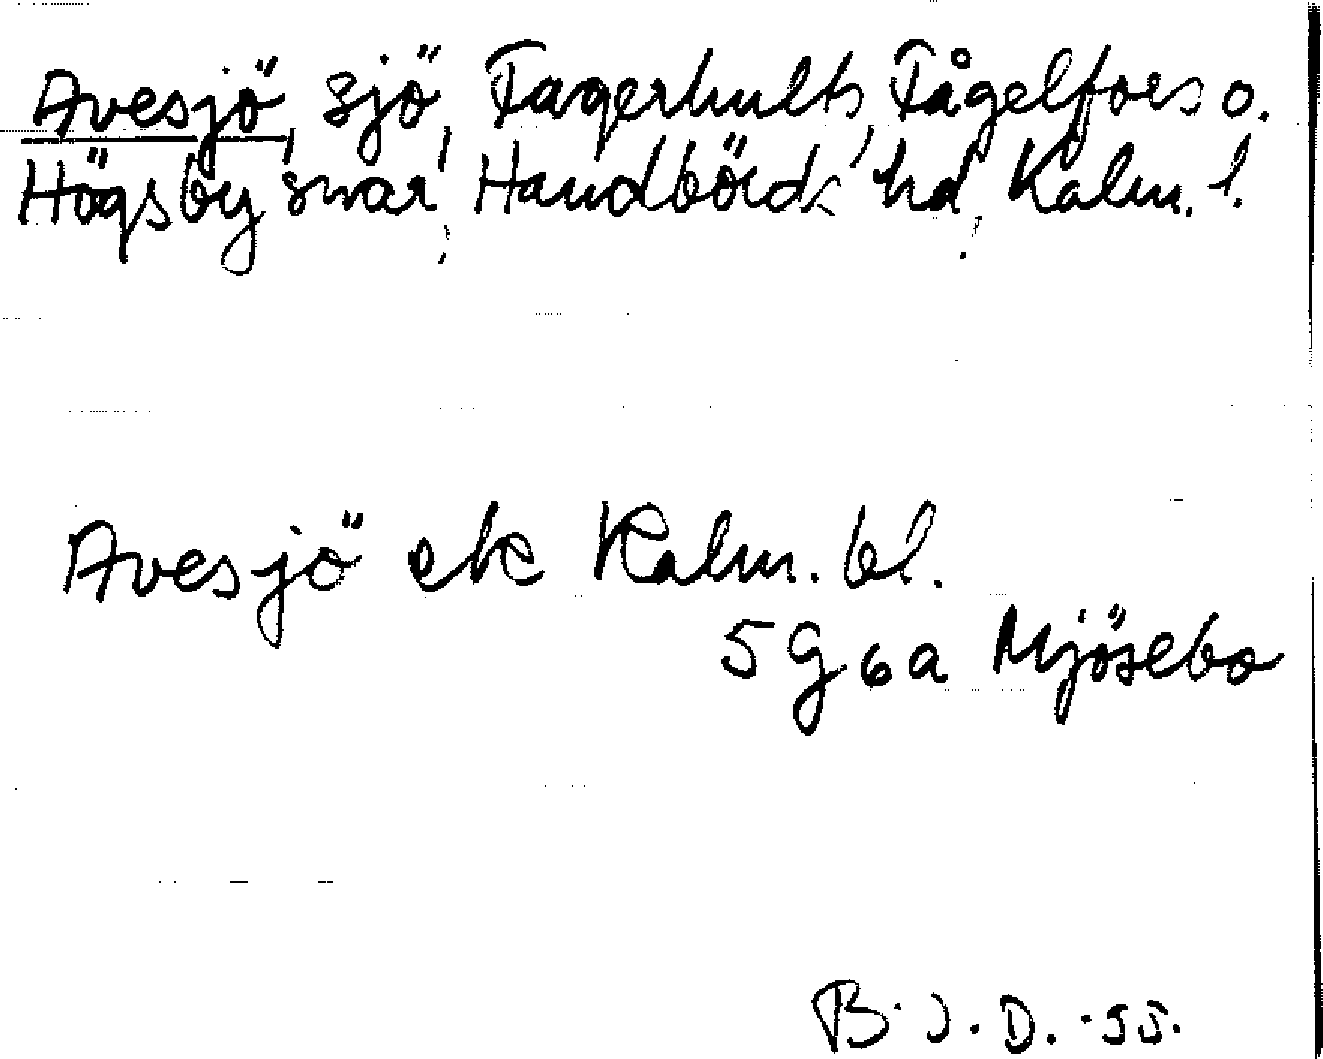 Avesjö, sjö, Fagerhults, Fågelfors o.
Högsby snar, Handbörds hd, Kalm. l.
Avesjö ek Kalm. bl.
5 G 6 a Mjösebo
B. J. D. -55.